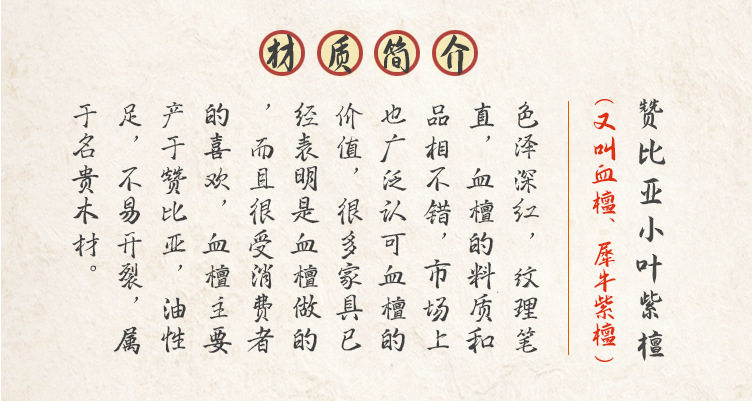 材质简介
赞比亚小叶紫檀
（又叫血檀、犀牛紫檀）
色泽深红，纹理笔
直，血檀的料质和
品相不错，市场上
也广泛认可血檀的
价值，很多家具已
经表明是血檀做的
，而且很受消费者
的喜欢，血檀主要
产于赞比亚，油性
足，不易开裂，属
于名贵木材。